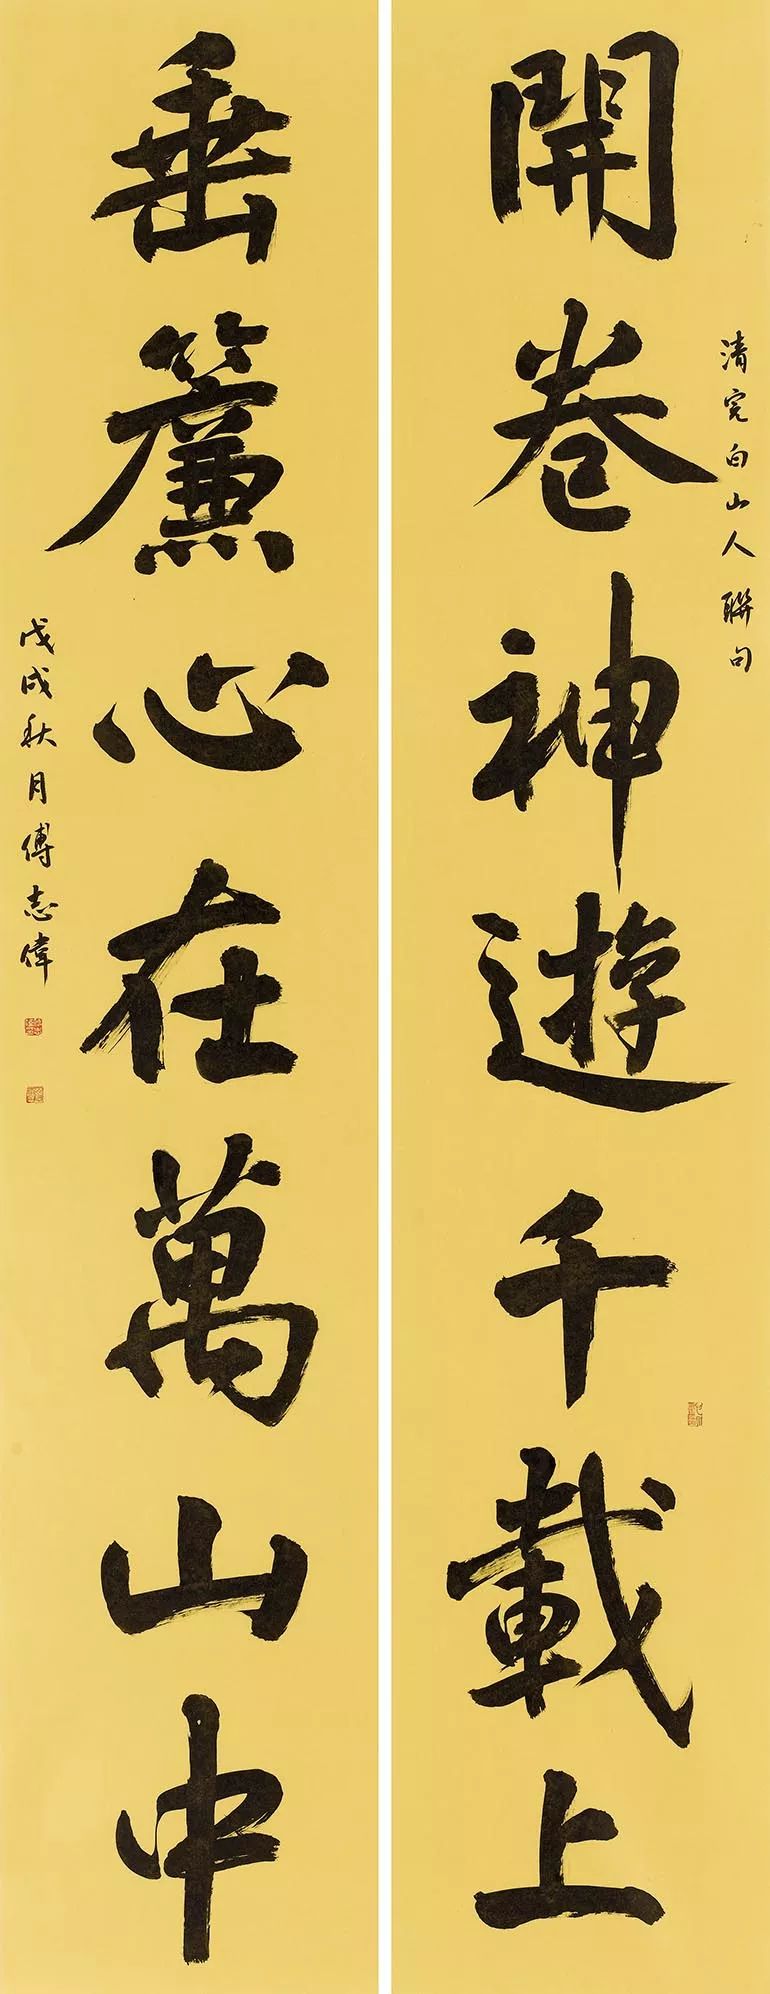 清完白山人聯句
開卷神遊千載上
垂簾心在萬山中
戊戌秋月傅志偉